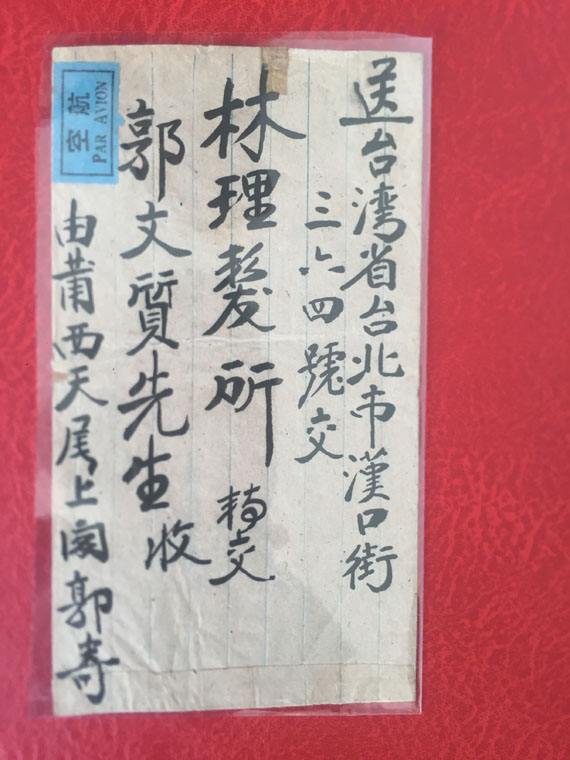 送台湾省台北市漢口街
三六四號交
林理髮所 轉交
郭文質先生收
由莆西天尾上閣郭寄
航空
PAR AVION